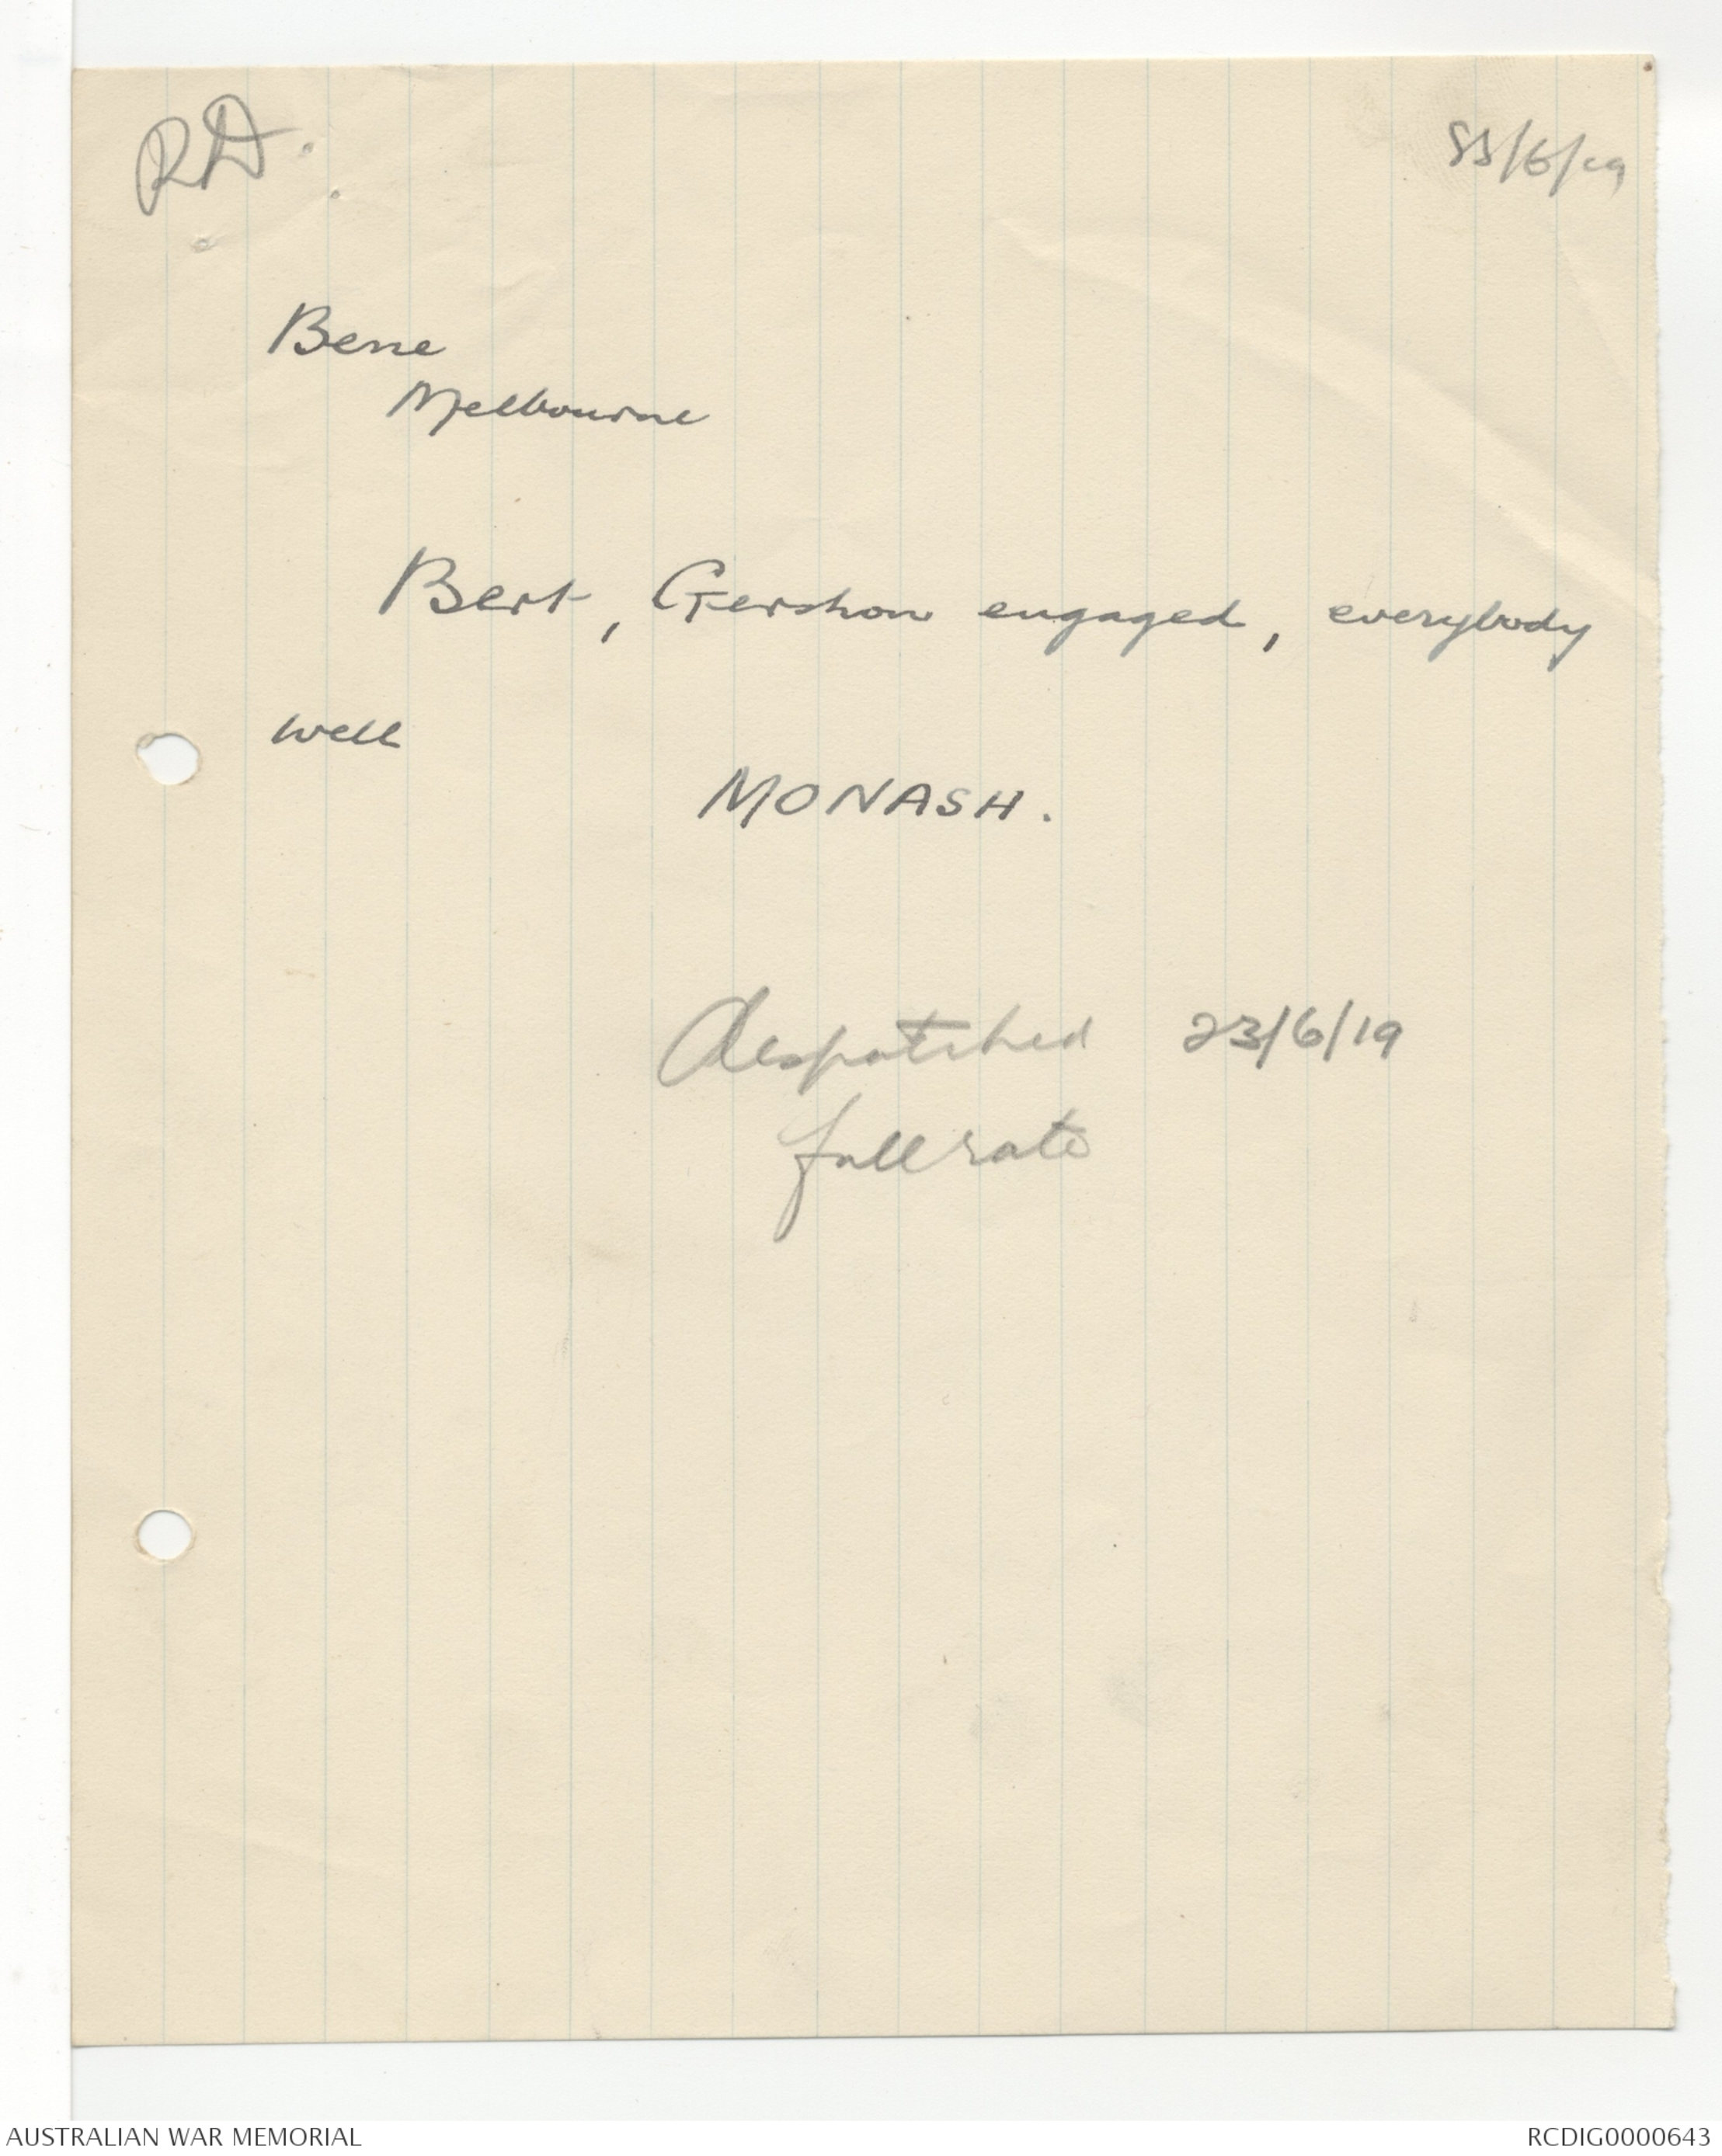 RD.
23/6/19
Bene
Melbourne
Bert, Gershon engaged, everybody
well
MONASH.
despatched 23/6/19
full rate
AUSTRALIAN WAR MEMORIAL
RCDIG0000643